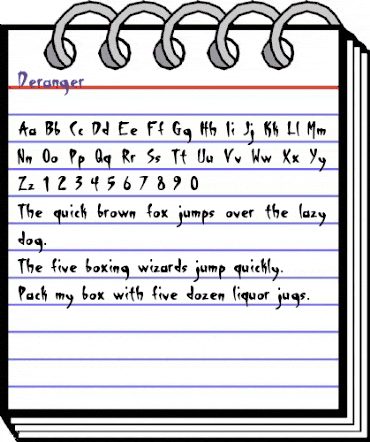 Deranger
Aa Bb Cc Dd Ee Ff Gg Hh Ii Jj Kk Ll Mm
Nn Oo Pp Qq Rr Ss Tt Uu Vv Ww Xx Yy
Zz 1 2 3 4 5 6 7 8 9 0
The quick brown fox jumps over the lazy
dog.
The five boxing wizards jump quickly.
Pack my box with five dozen liquor jugs.